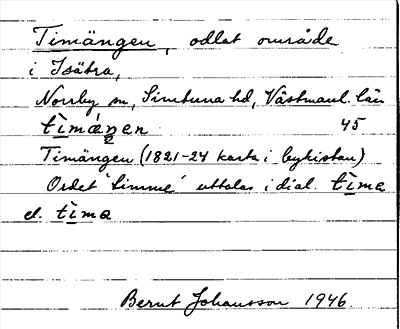 Timängen, odlat område
i Isätra,
Norrby sn, Simtuna hd, Västmanl. län
tìmáŋen 45
Timängen (1821-24 karta i bykistan)
Ordet 'timme' uttalas i dial. tìma
el. tìma
Bernt Johansson 1946.